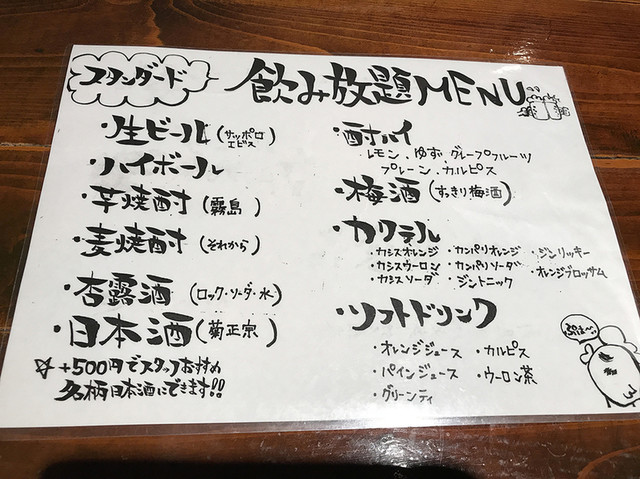 スタンダード
飲み放題MENU
・生ビール(サッポロ
エビス)
・ハイボール
・芋焼酎(霧島)
・麦焼酎(それから)
・杏露酒(ロック・ソーダ・水)
・日本酒(菊正宗)
☆+500円でスタッフおすすめ
名柄日本酒にできます!!
・酎ハイ
レモン、ゆず、グレープフルーツ
プレーン、カルピス
・梅酒(すっきり梅酒)
・カクテル
・カシスオレンジ ・カンパリオレンジ ・ジンリッキー
・カシスウーロン ・カンパリソーダ ・オレンジブロッサム
・カシスソーダ ・ジントニック
・ソフトドリンク
・オレンジジュース ・カルピス
・パインジュース ・ウーロン茶
・グリーンティ
ぷはーっ